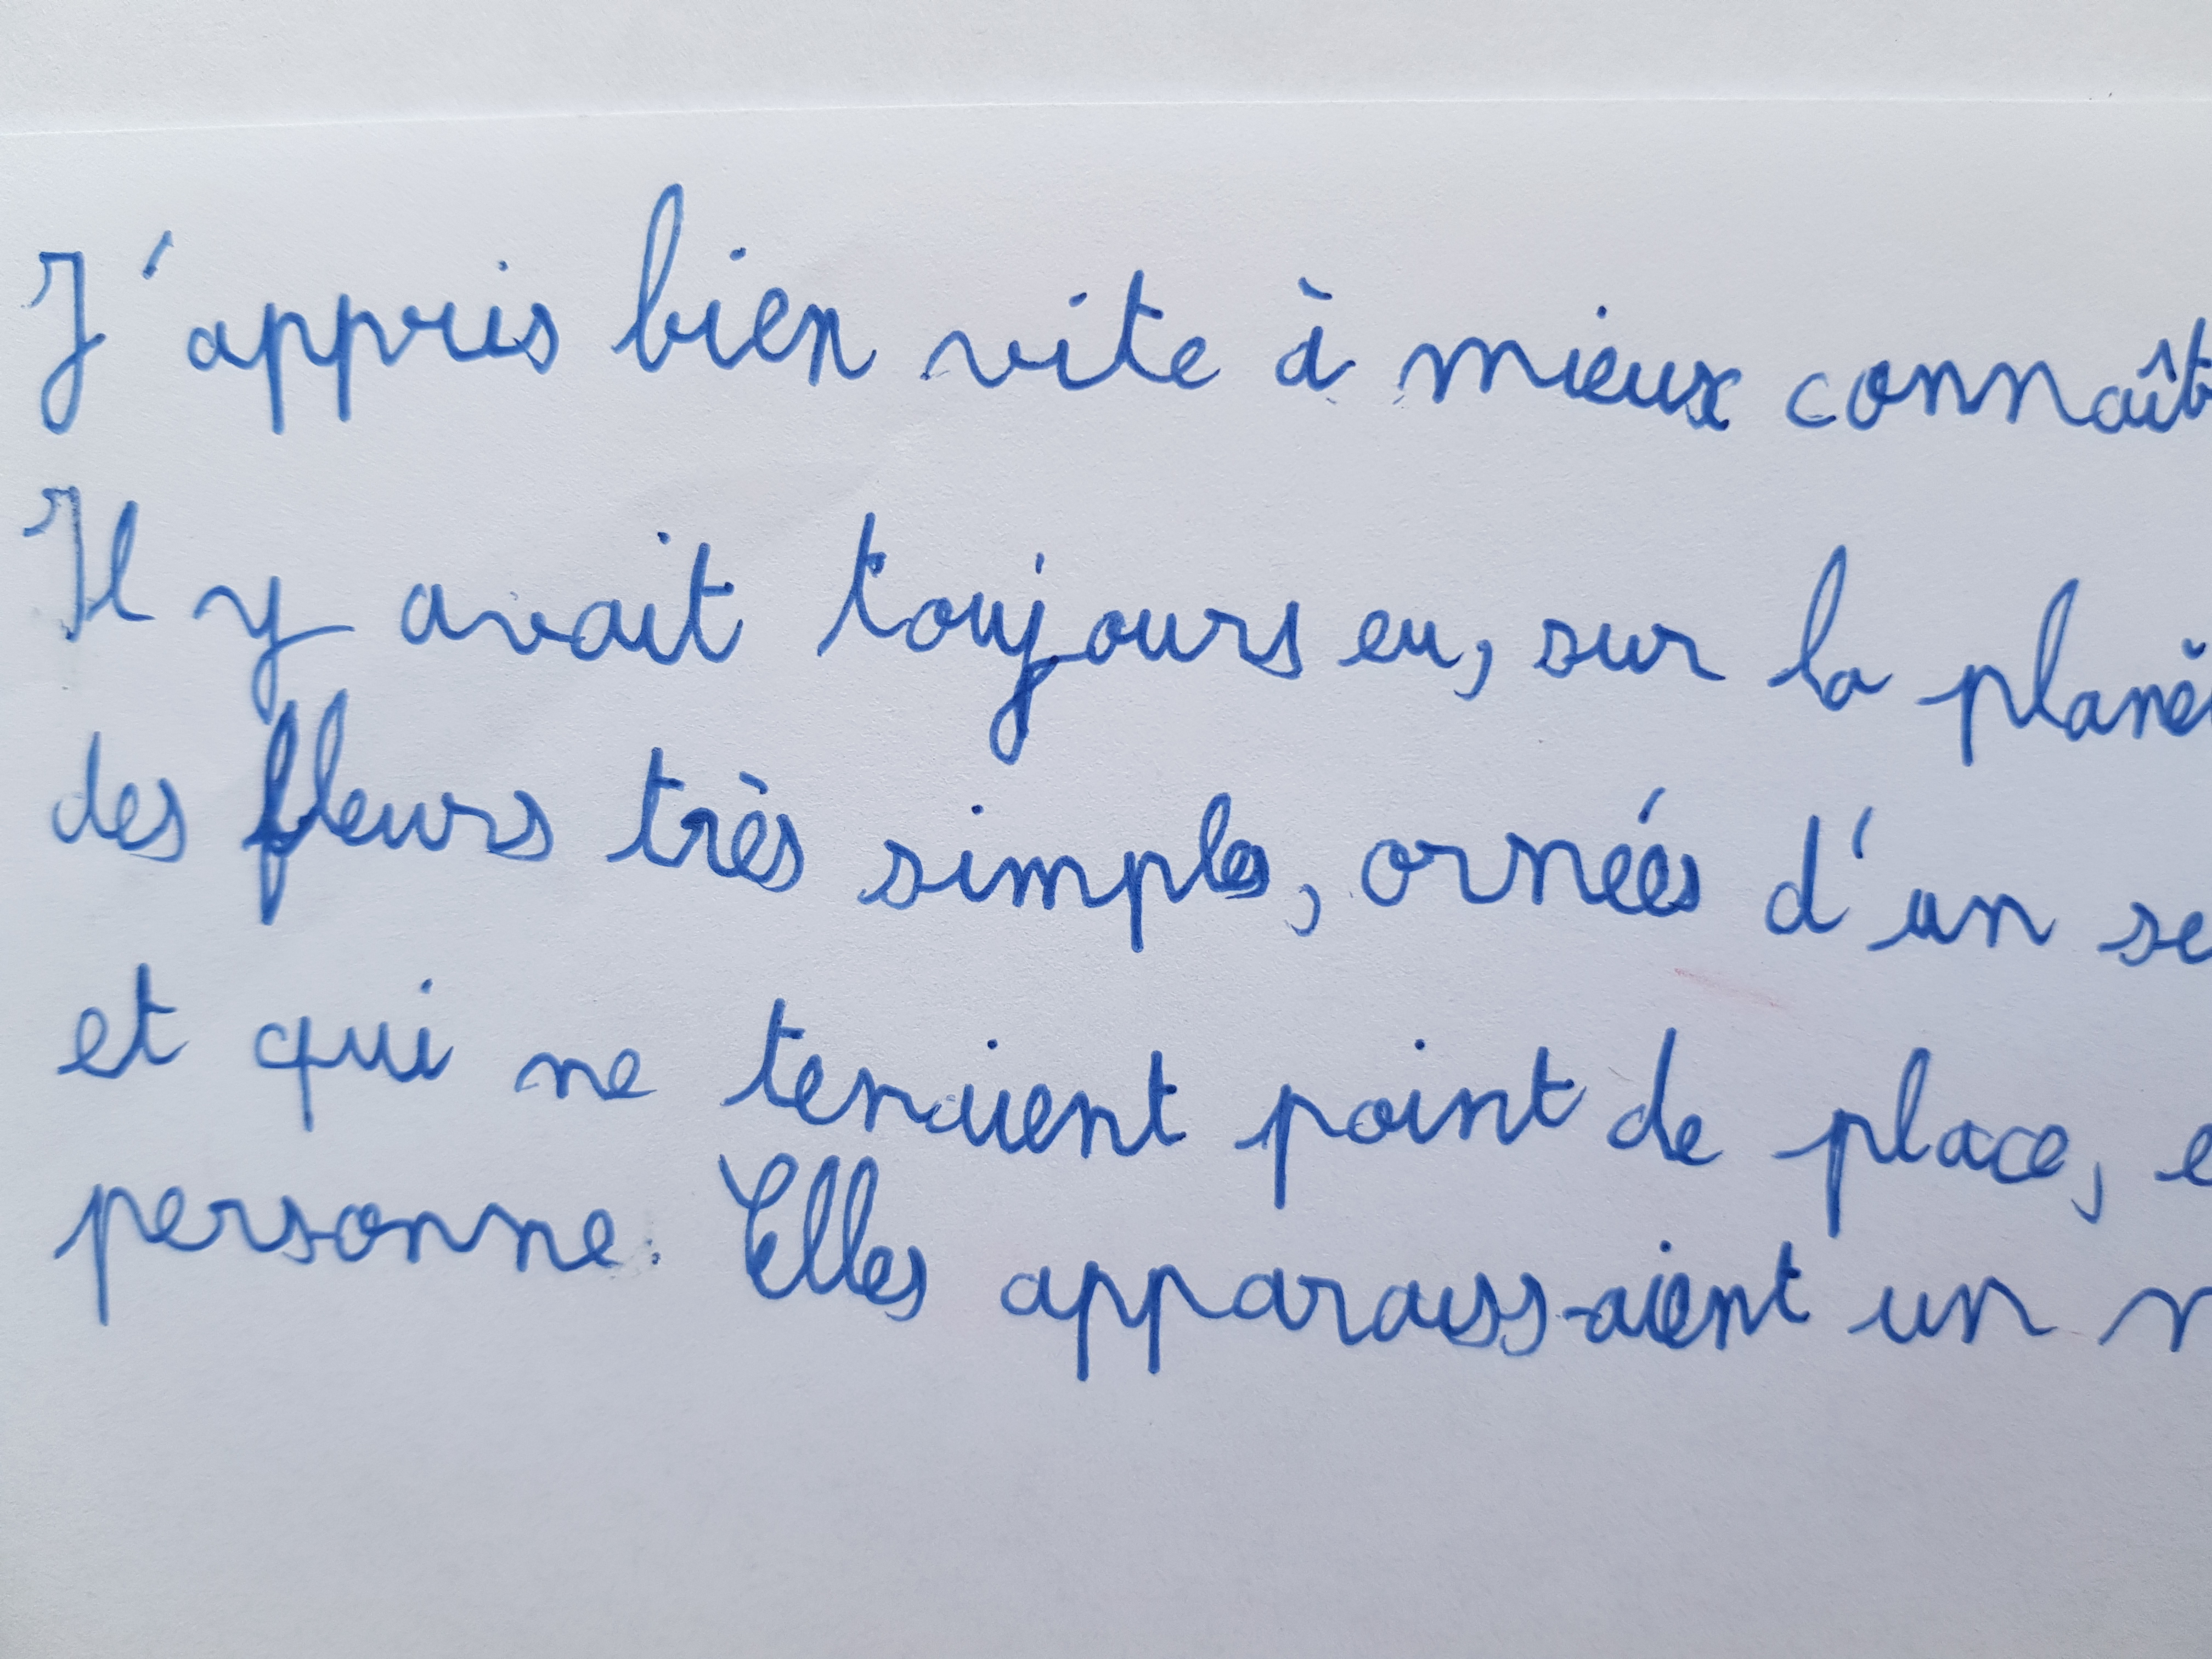 J'appris bien vite à mieux connaît
Il y avait toujours eu, sur la planè
des fleurs très simples, ornées d'un se
et qui ne tenaient point de place, e
personne. Elles apparaissaient un m